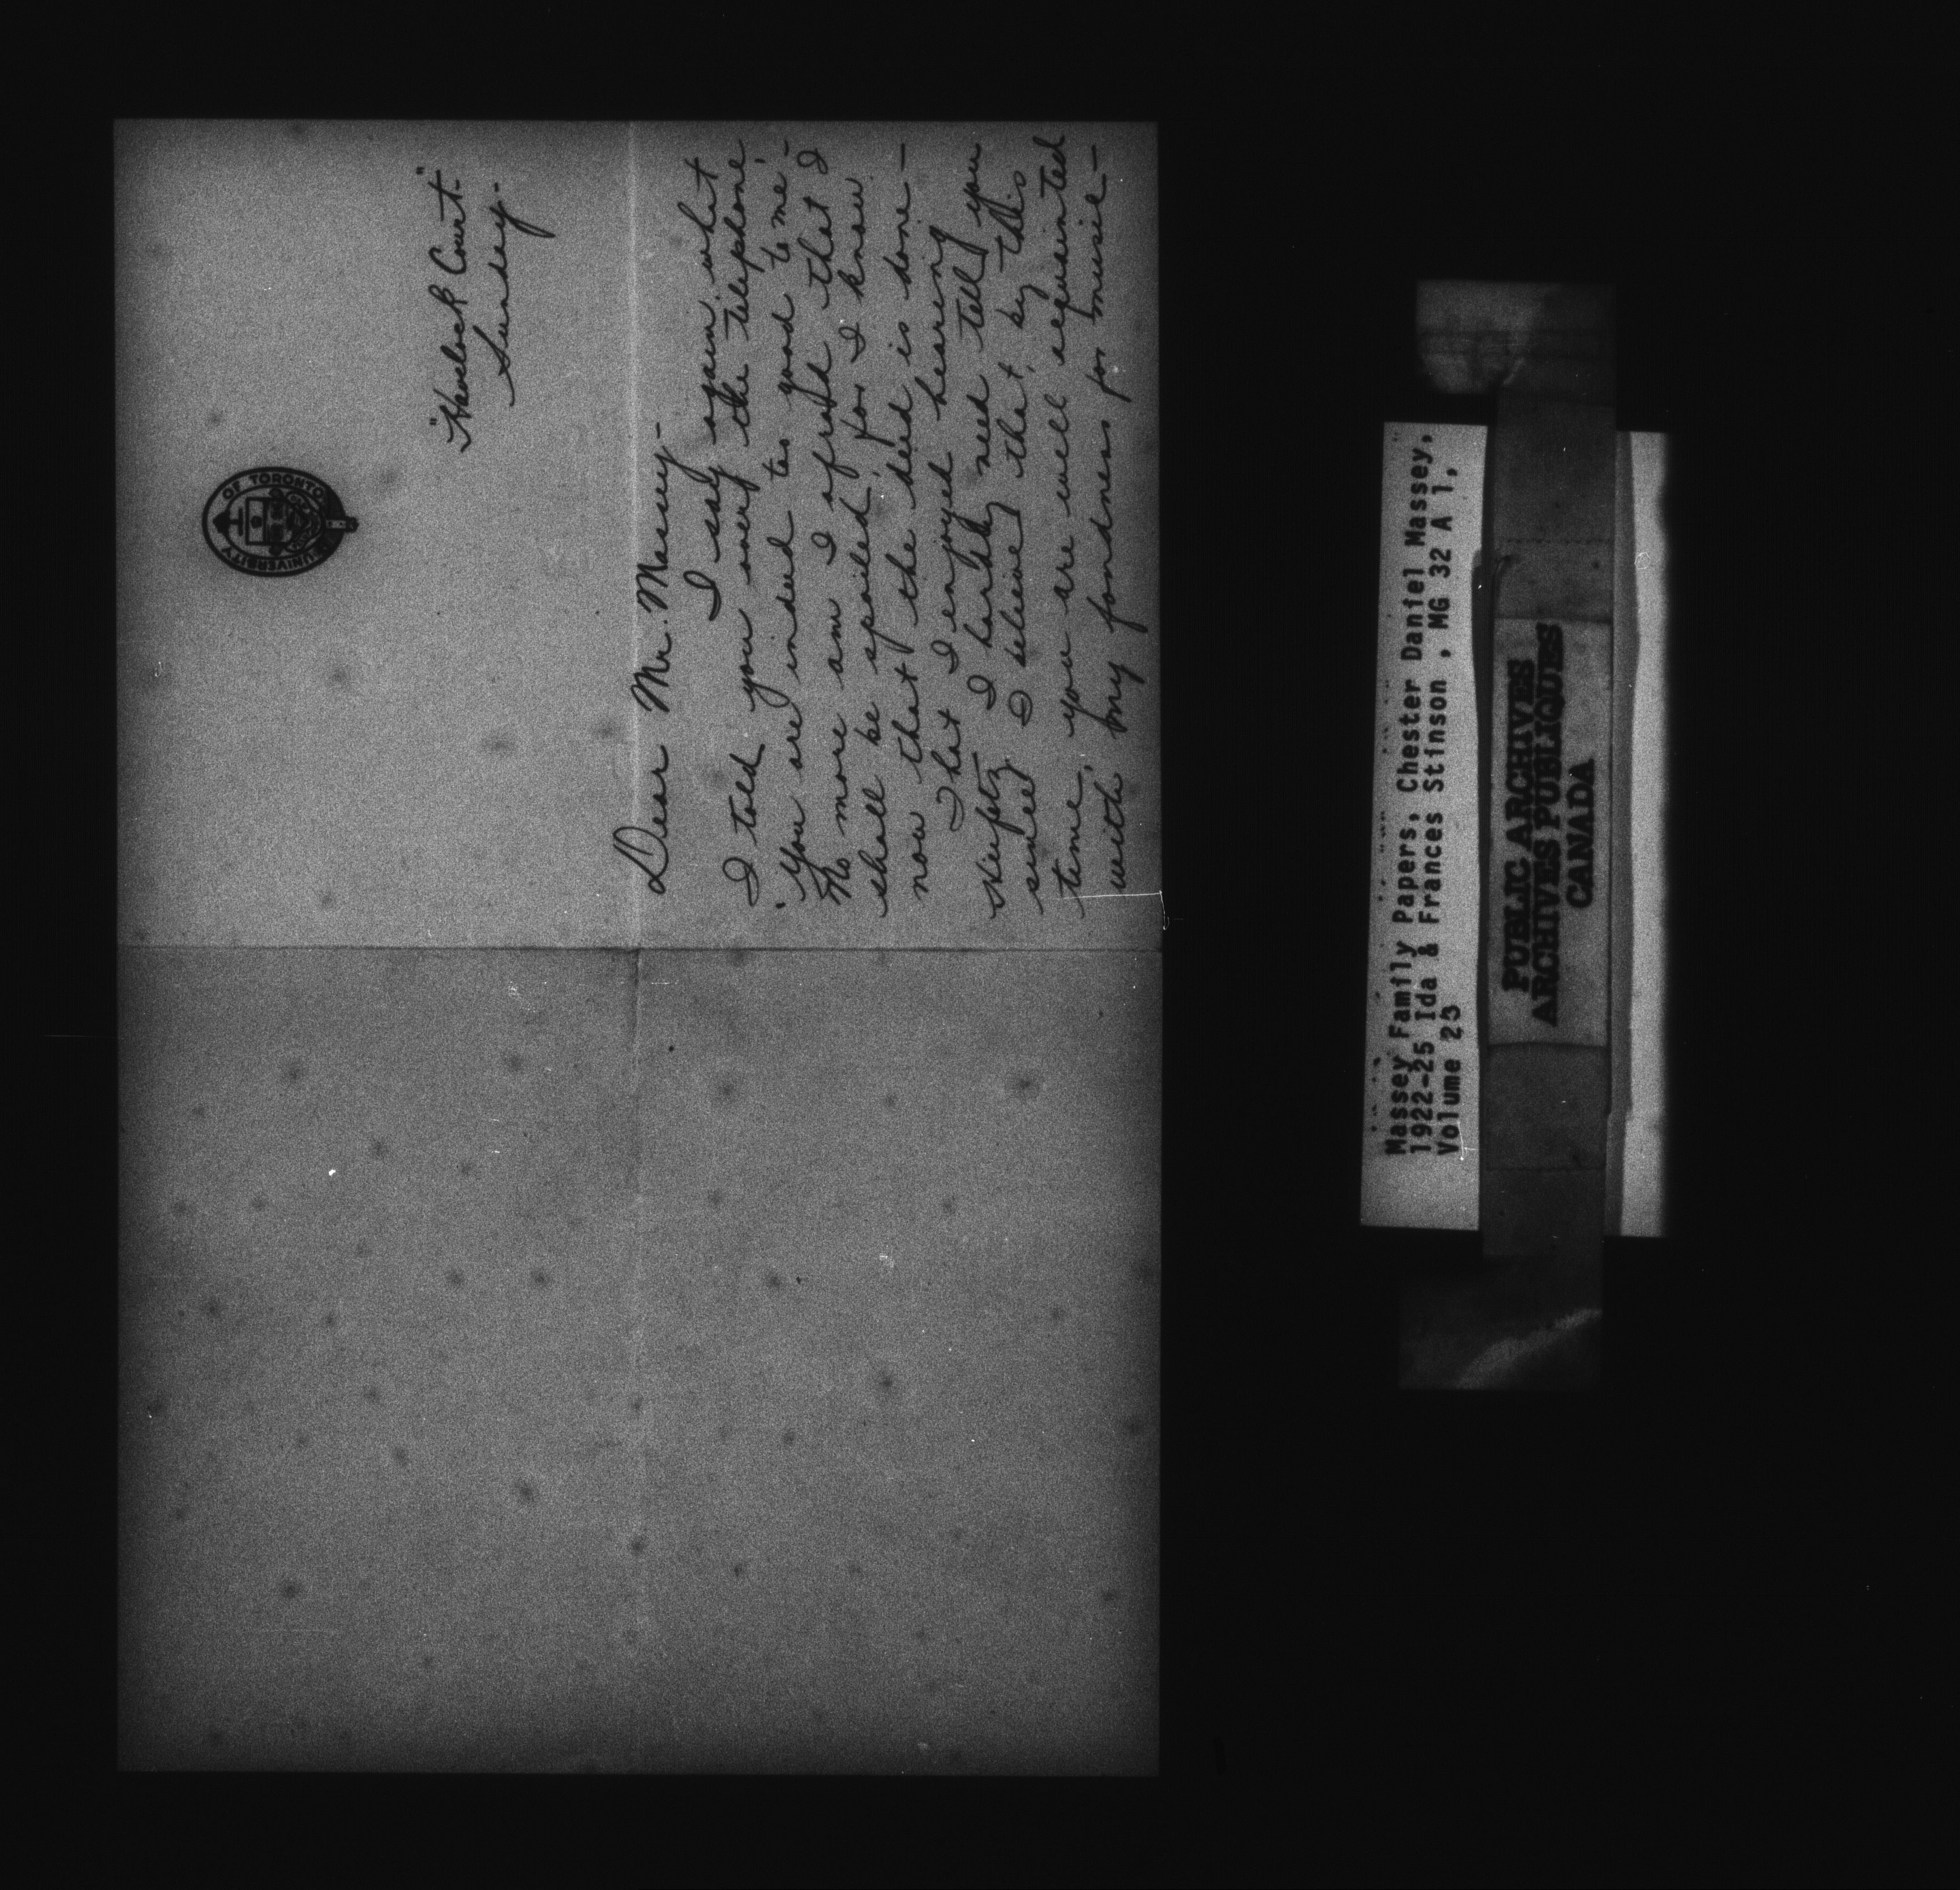 UNIVERSITY OF TORONTO
"Havelock Court"
Sunday-
Dear Mr. Massey-
I say again what
I told you over the telephone
'You are indeed too good to me'-
No more am I afraid that I
shall be spoiled, for I know
now that the deed is done-
That I enjoyed hearing
I hardly need tell you
since I believe that, by this
time, you are well acquainted
with my fondness for music-
Massey Family Papers, Chester Daniel Massey,
1922-25 Ida & Frances Stinson , MG 32 A 1,
Volume 23
PUBLIC ARCHIVES
ARCHIVES PUBLIQUES
CANADA